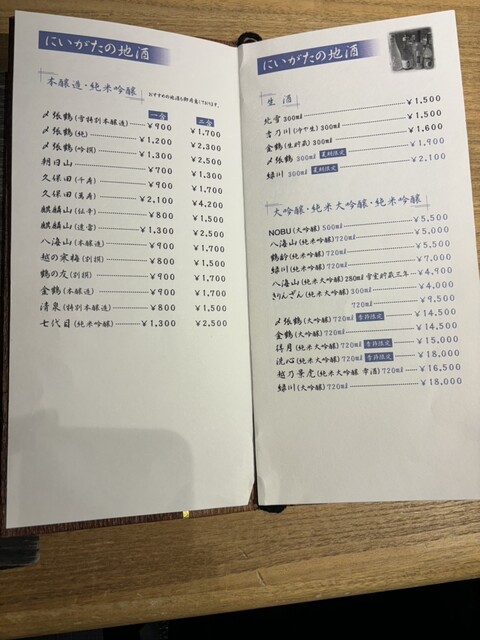 にいがたの地酒
本醸造・純米吟醸
おすすめの地酒も御用意しております。
一合 二合
〆張鶴(雪特別本醸造) ¥900 ¥1,700
〆張鶴(純) ¥1,200 ¥2,300
〆張鶴(吟撰) ¥1,300 ¥2,500
朝日山 ¥700 ¥1,300
久保田(千寿) ¥900 ¥1,700
久保田(萬寿) ¥2,100 ¥4,200
麒麟山(伝辛) ¥800 ¥1,500
麒麟山(遠雷) ¥1,300 ¥2,500
八海山(本醸造) ¥900 ¥1,700
越の寒梅(別撰) ¥800 ¥1,500
鶴の友(別撰) ¥900 ¥1,700
金鶴(本醸造) ¥900 ¥1,700
清泉(特別本醸造) ¥800 ¥1,500
七代目(純米吟醸) ¥1,300 ¥2,500
にいがたの地酒
生酒
北雪 300ml ¥1,500
雪乃川(冷や生) 300ml ¥1,500
金鶴(生貯蔵) 300ml ¥1,600
〆張鶴 300ml 夏期限定 ¥1,900
緑川 300ml 夏期限定 ¥2,100
大吟醸・純米大吟醸・純米吟醸
NOBU(大吟醸) 500ml ¥5,500
八海山(純米吟醸) 720ml ¥5,000
鶴齢(純米吟醸) 720ml ¥5,500
緑川(純米吟醸) 720ml ¥7,000
八海山(純米大吟醸) 280ml 雪室貯蔵三年 ¥4,900
きりんざん(純米大吟醸) 300ml ¥4,000
720ml ¥9,500
〆張鶴(大吟醸) 720ml 季節限定 ¥14,500
金鶴(大吟醸) 720ml ¥14,500
得月(純米大吟醸) 720ml 季節限定 ¥15,000
洗心(純米大吟醸) 720ml 季節限定 ¥18,000
越乃景虎(純米大吟醸 市酒) 720ml ¥16,500
緑川(大吟醸) 720ml ¥18,000